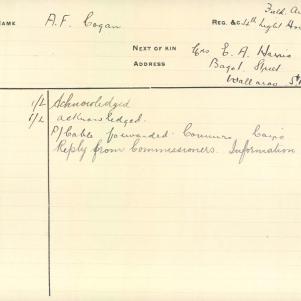 Field Au
NAME A.F. Cogan REG. &c. 4th Light Hor
NEXT OF KIN Mrs E. A. Harris
ADDRESS Bagot Street
Wallaroo Sth
1/2 Acknowledged
1/2 acknowledged.
P/Cable forwarded Commrs, Cairo
Reply from Commissioners. Information